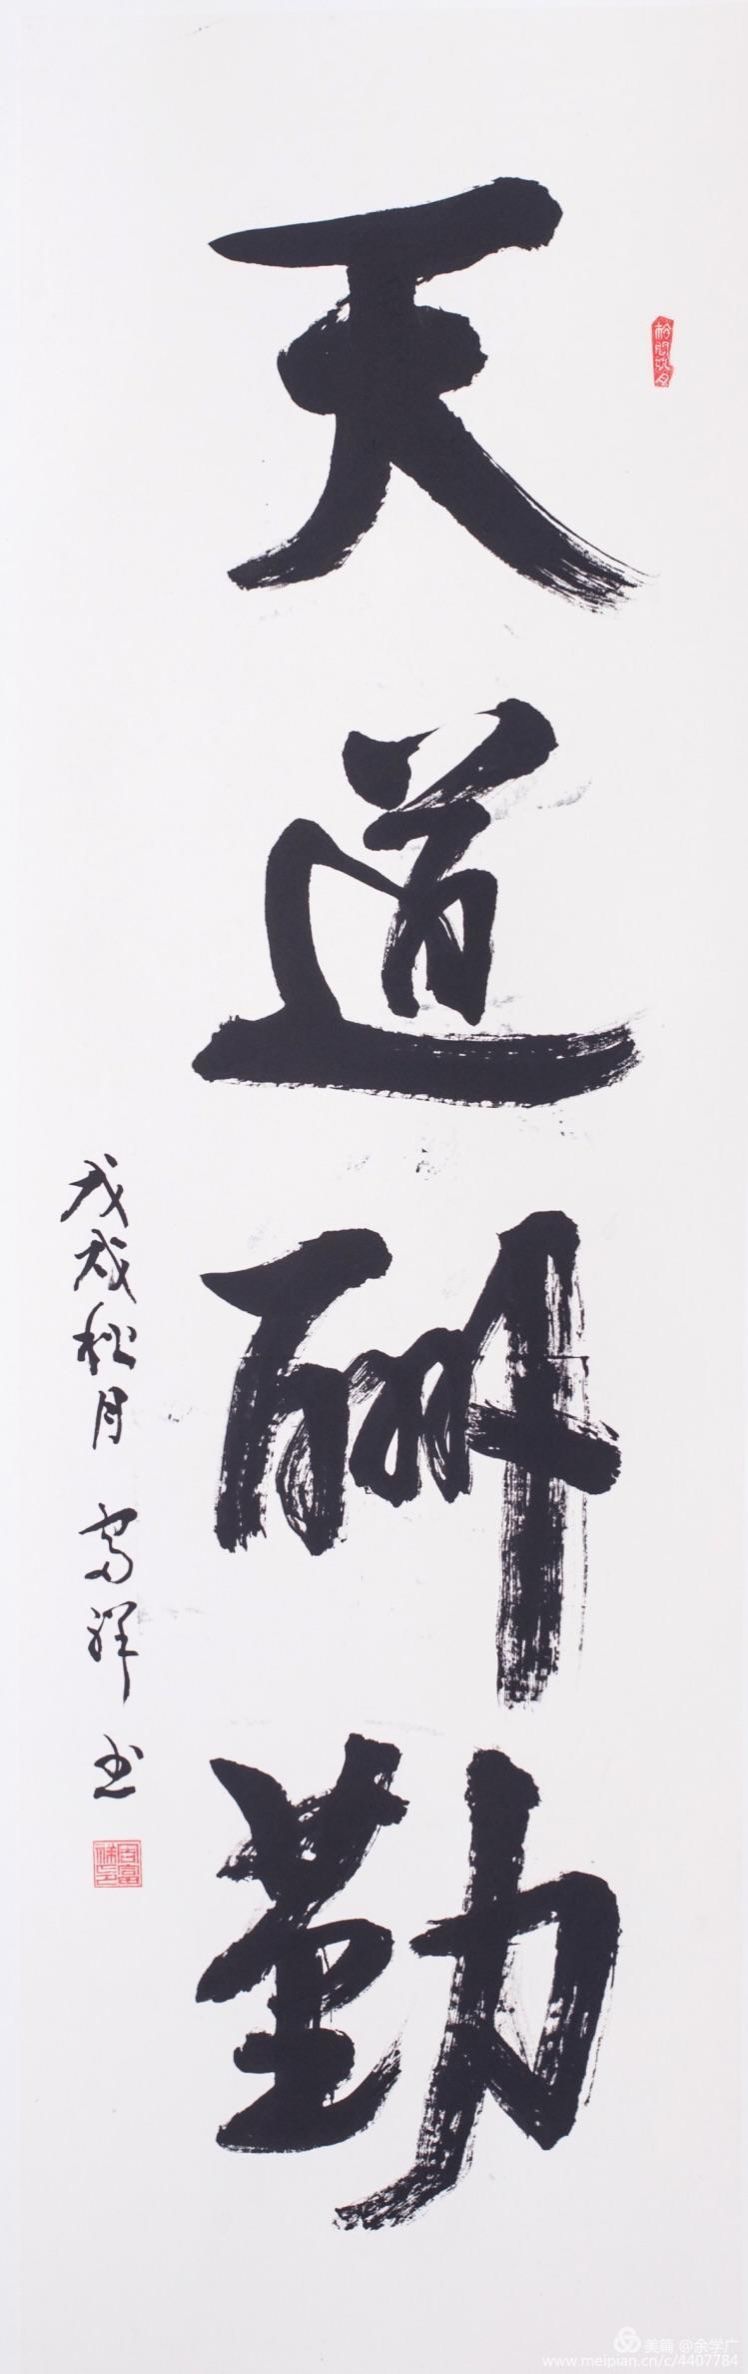 天道酬勤
戊戌秋月 富祥书
美篇 @余学广
www.meipian.cn/c/4407784